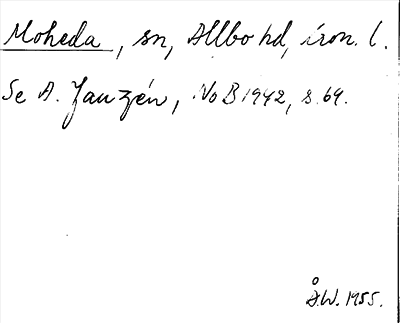 Moheda, sn, Allbo hd, iron. l.
Se A. Janzén, NoB 1942, s. 69.
Å.W. 1955.